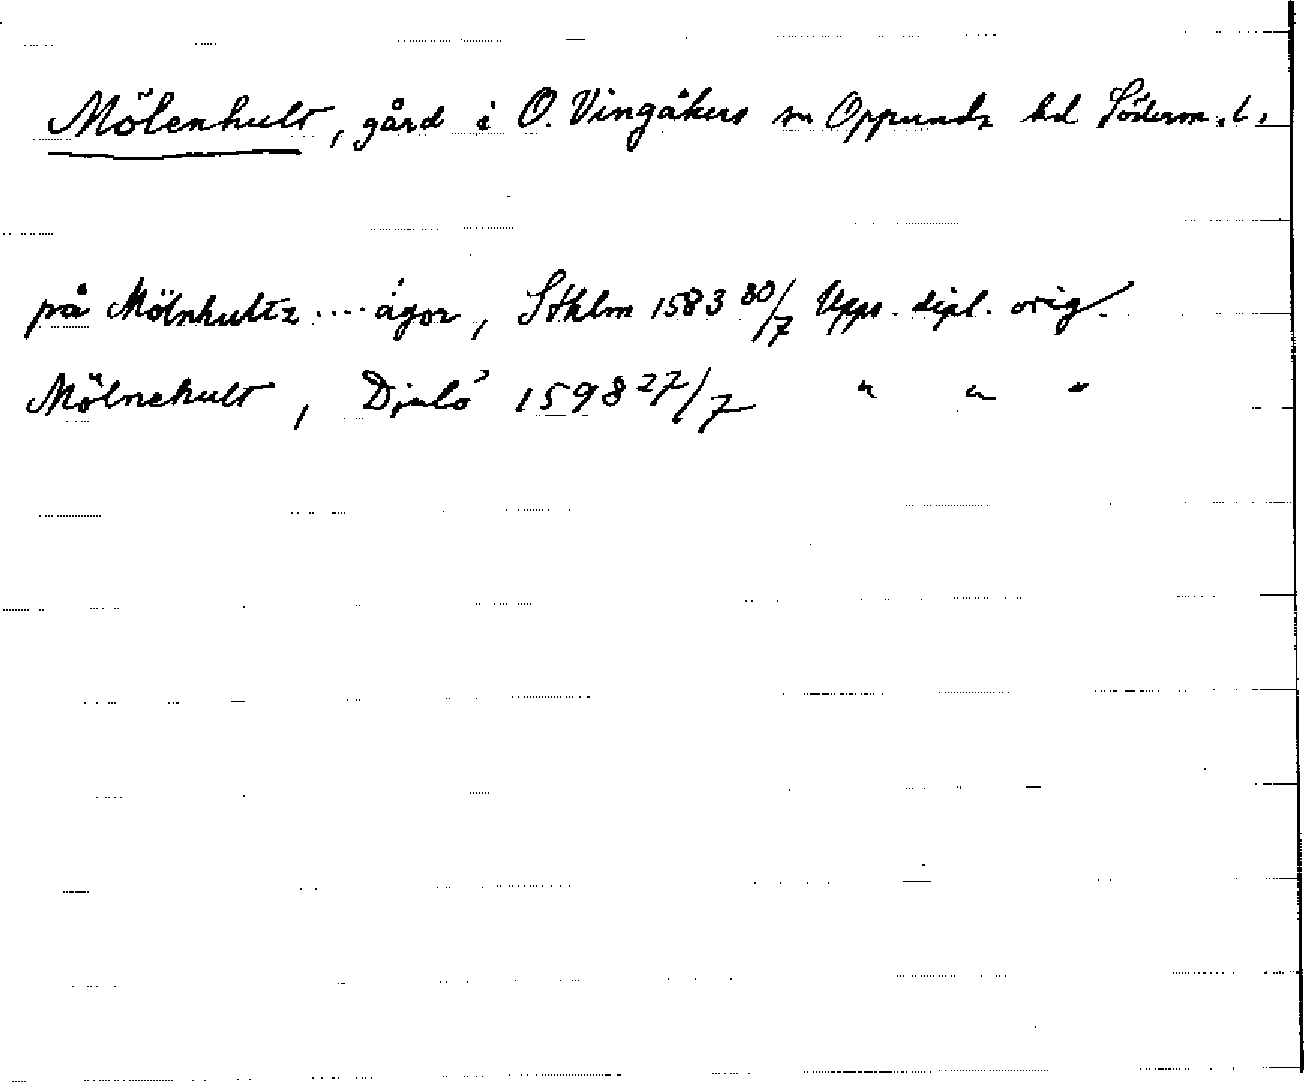 Mölenhult, gård i Ö. Vingåkers sn Oppunda hd Söderm. l.
på Mölnhultz .... ägor, Sthlm 1583 30/7 Upps. dipl. orig.
Mölnehult, Djulö 1598 27/7 " " "